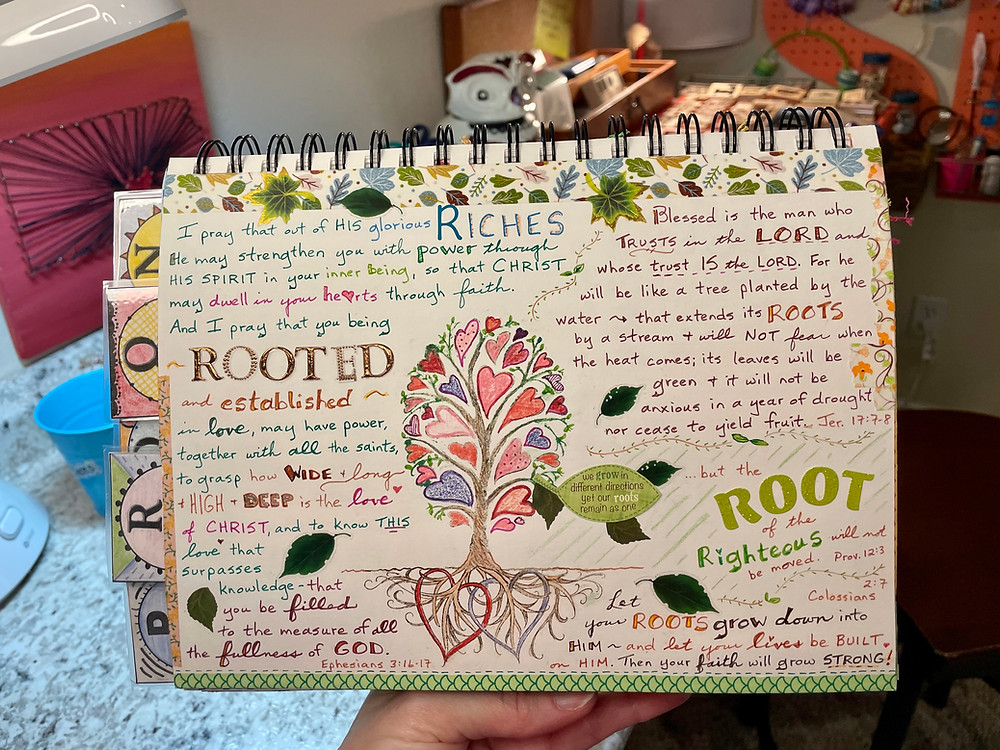 I pray that out of HIS glorious RICHES
He may strengthen you with power through
HIS SPIRIT in your inner Being, so that CHRIST
may dwell in your hearts through faith.
And I pray that you being
~ ROOTED
and established ~
in love, may have power,
together with all the saints,
to grasp how WIDE + long
+ HIGH + DEEP is the love
of CHRIST, and to know THIS
love that
surpasses
knowledge - that
you be filled
to the measure of all
the fullness of GOD.
Ephesians 3:16-17
Blessed is the man who
TRUSTS in the LORD and
whose trust IS the LORD. For he
will be like a tree planted by the
water ~> that extends its ROOTS
by a stream + will NOT fear when
the heat comes; its leaves will be
green + it will not be
anxious in a year of drought
nor cease to yield fruit. Jer. 17:7-8
we grow in
different directions
yet our roots
remain as one
...but the
ROOT
of the
Righteous will not
be moved. Prov. 12:3
2:7
Colossians
Let
your ROOTS grow down into
HIM ~ and let your lives be BUILT
on HIM. Then your faith will grow STRONG!
N
O
R
D